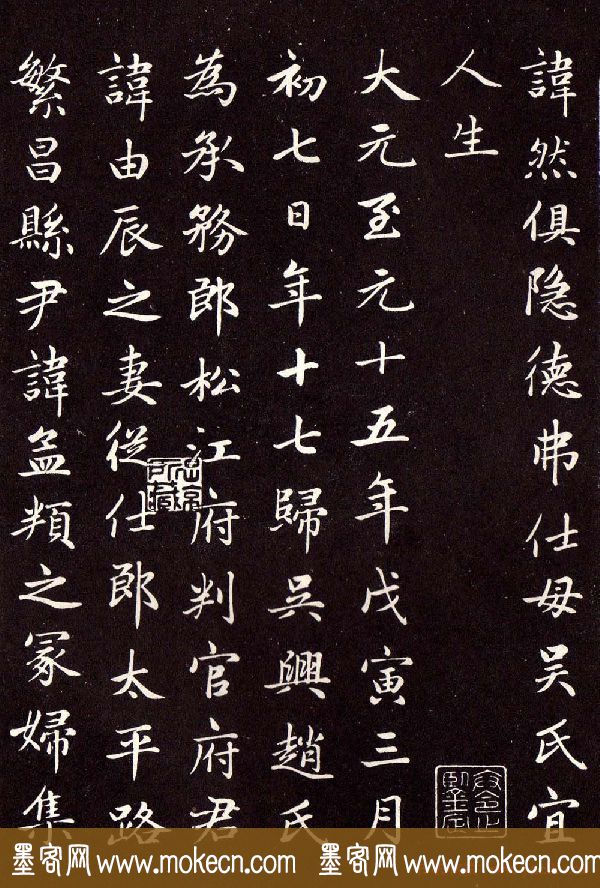 諱然俱隐德弗仕毋吴氏宜
人生
大元至元十五年戊寅三月
初七日年十七歸吴興趙氏
為承務郎松江府判官府君
諱由辰之妻從仕郎太平路
繁昌縣尹諱孟頪之冢婦集
墨客网 www.mokecn.com 墨客网 www.mokecn.com